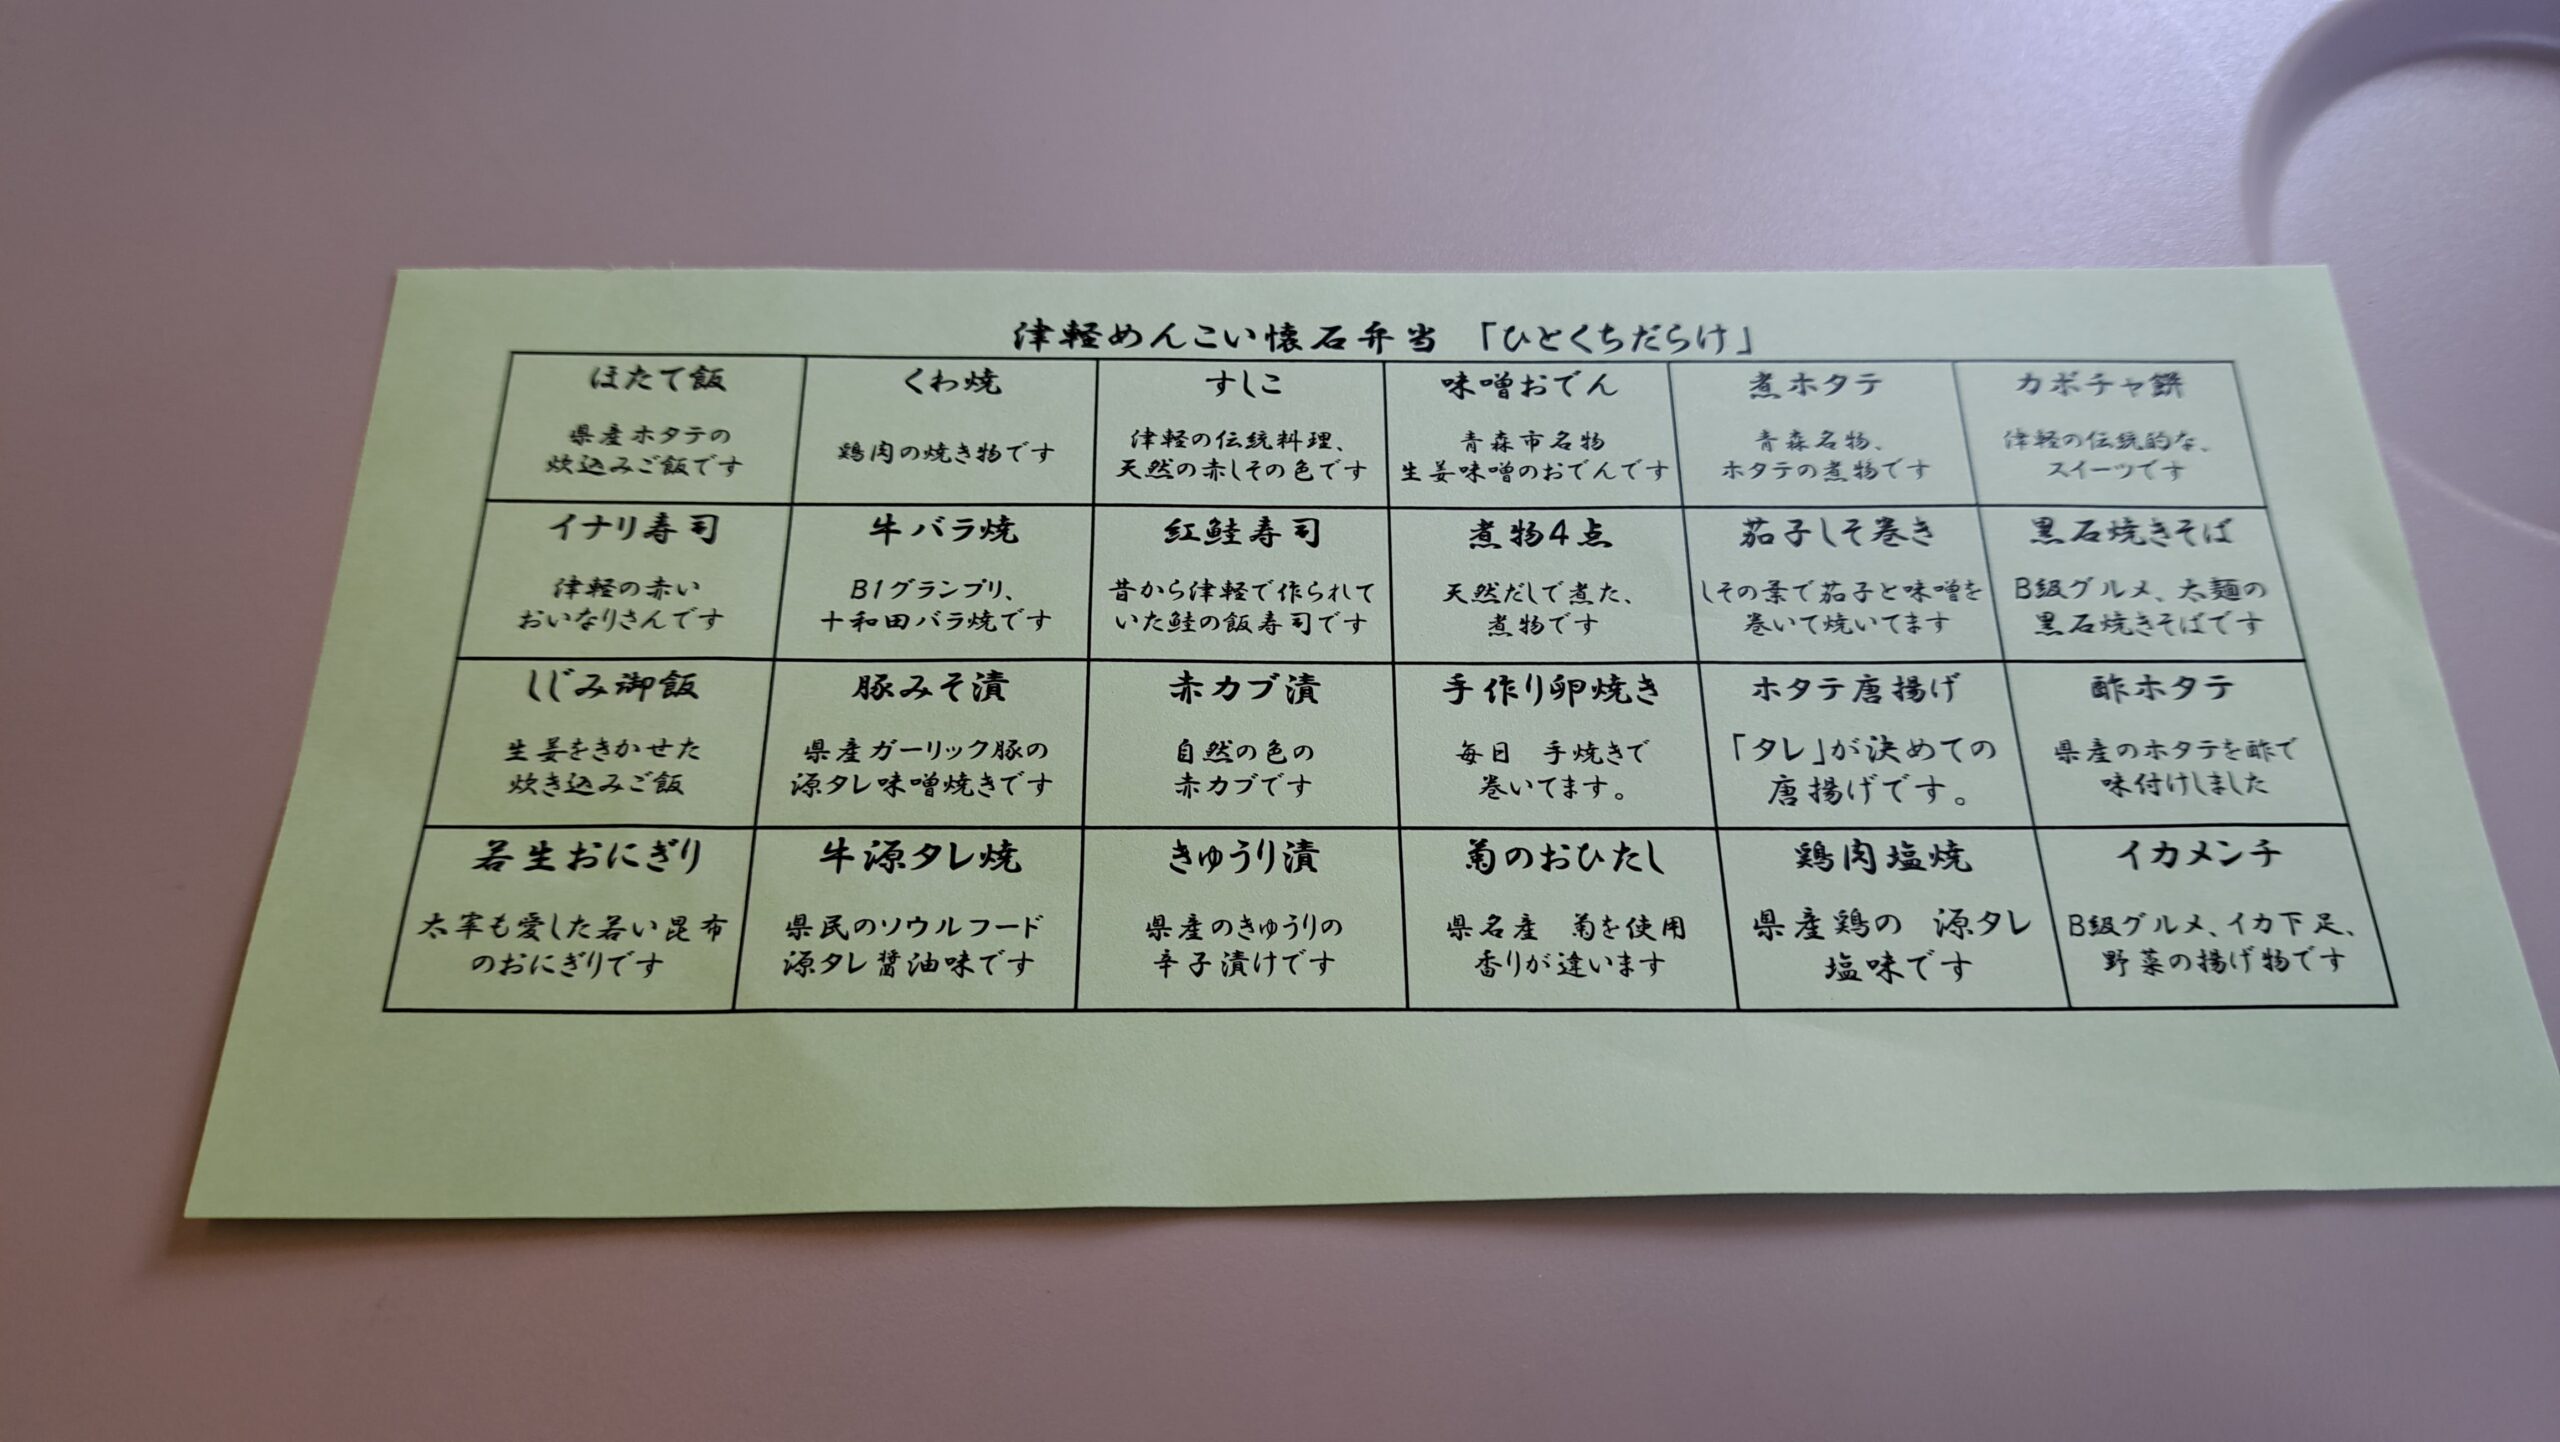 津軽めんこい懐石弁当 「ひとくちだらけ」
ほたて飯
県産ホタテの
炊込みご飯です
くわ焼
鶏肉の焼き物です
すしこ
津軽の伝統料理、
天然の赤しその色です
味噌おでん
青森市名物
生姜味噌のおでんです
煮ホタテ
青森名物、
ホタテの煮物です
カボチャ餅
津軽の伝統的な、
スイーツです
イナリ寿司
津軽の赤い
おいなりさんです
牛バラ焼
B1グランプリ、
十和田バラ焼です
紅鮭寿司
昔から津軽で作られて
いた鮭の飯寿司です
煮物4点
天然だしで煮た、
煮物です
茄子しそ巻き
しその葉で茄子と味噌を
巻いて焼いてます
黒石焼きそば
B級グルメ、太麺の
黒石焼きそばです
しじみ御飯
生姜をきかせた
炊き込みご飯
豚みそ漬
県産ガーリック豚の
源タレ味噌焼きです
赤カブ漬
自然の色の
赤カブです
手作り卵焼き
毎日 手焼きで
巻いてます。
ホタテ唐揚げ
「タレ」が決めての
唐揚げです。
酢ホタテ
県産のホタテを酢で
味付けしました
若生おにぎり
太宰も愛した若い昆布
のおにぎりです
牛源タレ焼
県民のソウルフード
源タレ醤油味です
きゅうり漬
県産のきゅうりの
辛子漬けです
菊のおひたし
県名産 菊を使用
香りが違います
鶏肉塩焼
県産鶏の 源タレ
塩味です
イカメンチ
B級グルメ、イカ下足、
野菜の揚げ物です